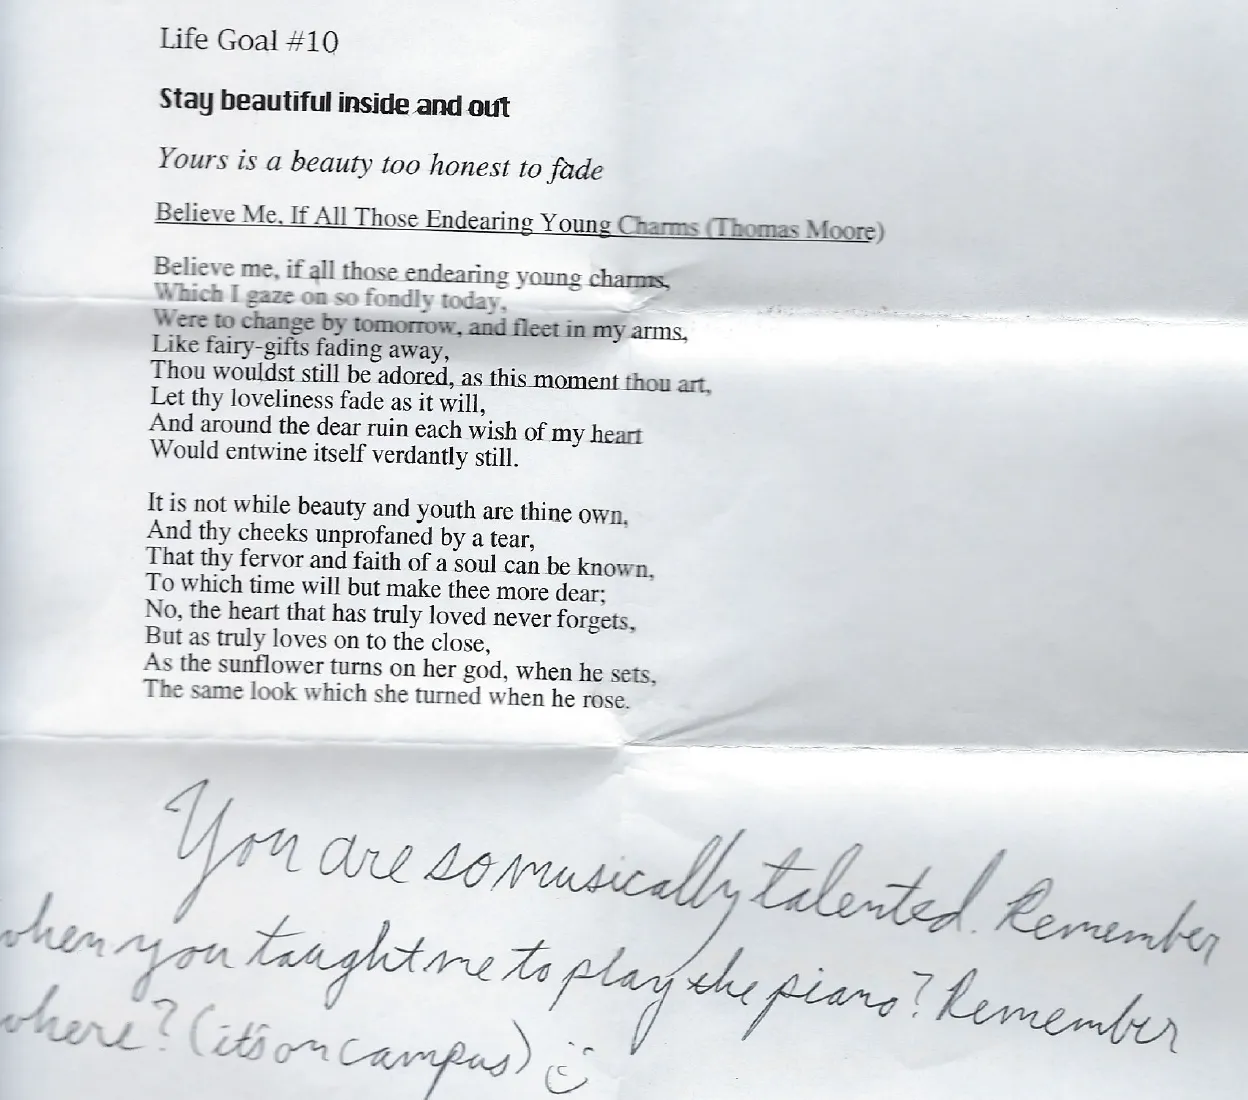 Life Goal #10
Stay beautiful inside and out
Yours is a beauty too honest to fade
Believe Me, If All Those Endearing Young Charms (Thomas Moore)
Believe me, if all those endearing young charms,
Which I gaze on so fondly today,
Were to change by tomorrow, and fleet in my arms,
Like fairy-gifts fading away,
Thou wouldst still be adored, as this moment thou art,
Let thy loveliness fade as it will,
And around the dear ruin each wish of my heart
Would entwine itself verdantly still.
It is not while beauty and youth are thine own,
And thy cheeks unprofaned by a tear,
That thy fervor and faith of a soul can be known,
To which time will but make thee more dear;
No, the heart that has truly loved never forgets,
But as truly loves on to the close,
As the sunflower turns on her god, when he sets,
The same look which she turned when he rose.
You are so musically talented. Remember
when you taught me to play the piano? Remember
where? (it's on campus) :)